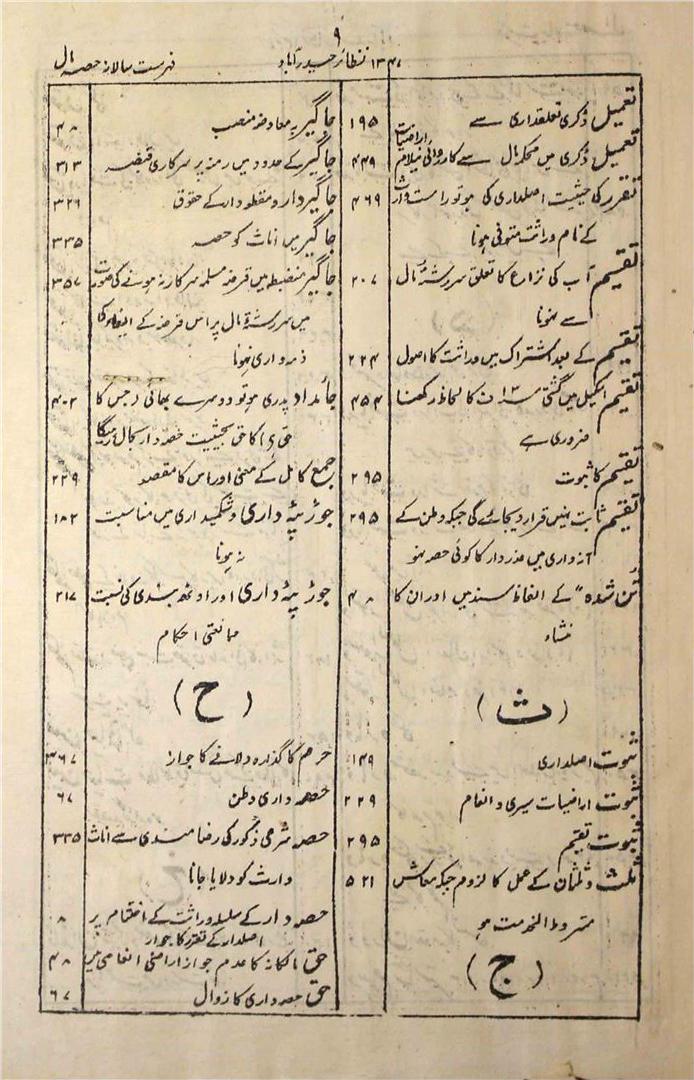 ۹
فہرست سالانہ حصہ مال
نظائر حیدرآباد
تعمیل ڈگری تعلقداری سے ۱۹۵
تعمیل ڈگری میں محکمہ مال سے کارروائی نیلام اراضیات ۴۳۹
تقرر کی حیثیت اصلداری کی ہو تو راست وارث ۴۶۹
کے نام وراثت متوفی ہونا
تقسیم آب کی نزاع کا تعلق سررشتہ مال ۲۰۷
سے ہونا
تقسیم کے بعد اشتراک میں وراثت کا اصول ۲۲۴
تقسیم اسکیل میں گشتی ۱۳ ن کا لحاظ رکھنا ۴۵۴
ضروری ہے
تقسیم کا ثبوت ۲۹۵
تقسیم ثابت نہیں قرار دیجائے گی جبکہ وطن کے ۲۹۵
آنہ واری میں عذردار کا کوئی حصہ نہو
شدہ" کے الفاظ سند میں اور ان کا ۴۸
منشاء
(ث)
ثبوت اصلداری ۱۴۹
ثبوت اراضیات سیری و انعام ۲۲۹
ثبوت تقسیم ۲۹۵
ثلث و ثلثان کے عمل کا لزوم جبکہ معاش ۵۲۱
مشروط الخدمت ہو
(ج)
جاگیر بہ معاوضہ منصب ۴۸
جاگیر کے حدود میں رمنہ پر سرکاری قبضہ ۳۱۳
جاگیردار و مقطعہ داں کے حقوق ۳۲۶
جاگیر میں اناث کو حصہ ۳۳۵
جاگیر منضبطہ میں قرضہ مسلمہ سرکار نہ ہونے کی صورت ۳۵۷
میں سررشتہ مال پر اس قرضہ کے ایفاء کی
ذمہ داری نہونا
جائداد پدری ہو تو دوسرے بھائی (جس کا ۴۰۲
حق) کا حق بحیثیت حصہ دار بحال رہیگا
جمع کامل کے معنی اور اس کا مقصد ۲۲۹
جوڑ پٹہ داری و شکمیداری میں مناسبت ۱۸۲
نہ ہونا
جوڑ پٹہ داری اور اوٹھ بندی کی نسبت ۲۱۷
ممانعتی احکام
(ح)
حرم کا گذارہ دلانے کا جواز ۳۶۷
حصہ داری وطن ۶۷
حصہ شرعی ذکور کی رضامندی سے اناث ۳۳۵
وارث کو دلایا جانا
حصہ دار کے سلسلہ وراثت کے اختتام پر ۸
اصلدار کے تقرر کا جواز
حق مالکانہ کا عدم جواز اراضی انعامی میں ۴۸
حق حصہ داری کا زوال ۶۷